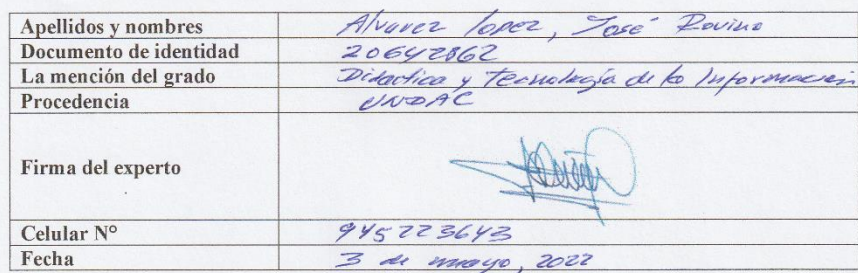 Apellidos y nombres Alvarez lopez, José Rovino
Documento de identidad 20642862
La mención del grado Didactica y Tecnología de la Información
Procedencia UNDAC
Firma del experto
Celular N° 945223643
Fecha 3 de mayo, 2022